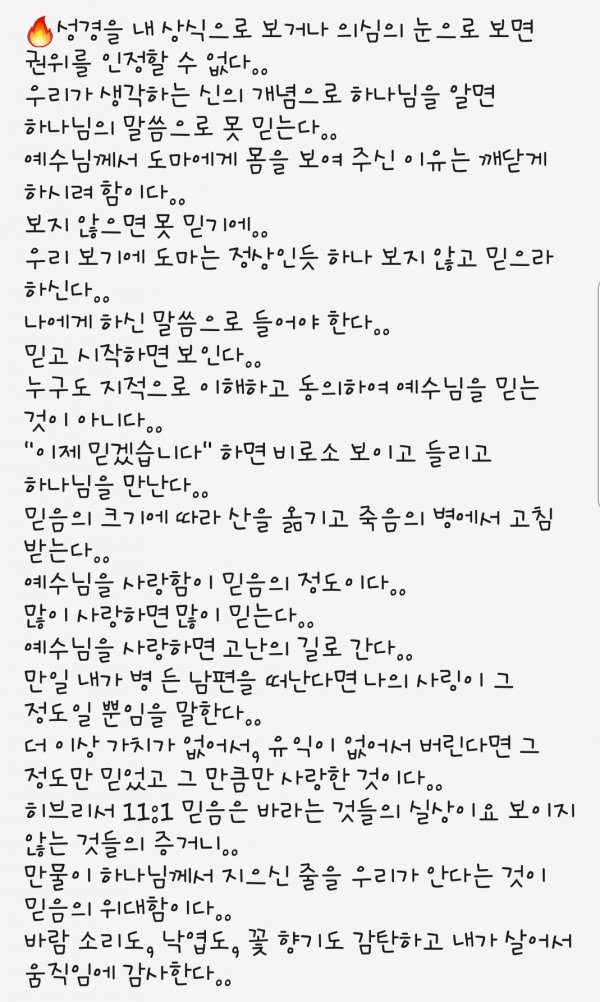 🔥성경을 내 상식으로 보거나 의심의 눈으로 보면
권위를 인정할 수 없다..
우리가 생각하는 신의 개념으로 하나님을 알면
하나님의 말씀으로 못 믿는다..
예수님께서 도마에게 몸을 보여 주신 이유는 깨닫게
하시려 함이다..
보지 않으면 못 믿기에..
우리 보기에 도마는 정상인듯 하나 보지 않고 믿으라
하신다..
나에게 하신 말씀으로 들어야 한다..
믿고 시작하면 보인다..
누구도 지적으로 이해하고 동의하여 예수님을 믿는
것이 아니다..
"이제 믿겠습니다" 하면 비로소 보이고 들리고
하나님을 만난다..
믿음의 크기에 따라 산을 옮기고 죽음의 병에서 고침
받는다..
예수님을 사랑함이 믿음의 정도이다..
많이 사랑하면 많이 믿는다..
예수님을 사랑하면 고난의 길로 간다..
만일 내가 병 든 남편을 떠난다면 나의 사링이 그
정도일 뿐임을 말한다..
더 이상 가치가 없어서, 유익이 없어서 버린다면 그
정도만 믿었고 그 만큼만 사랑한 것이다..
히브리서 11:1 믿음은 바라는 것들의 실상이요 보이지
않는 것들의 증거니..
만물이 하나님께서 지으신 줄을 우리가 안다는 것이
믿음의 위대함이다..
바람 소리도, 낙엽도, 꽃 향기도 감탄하고 내가 살어서
움직임에 감사한다..